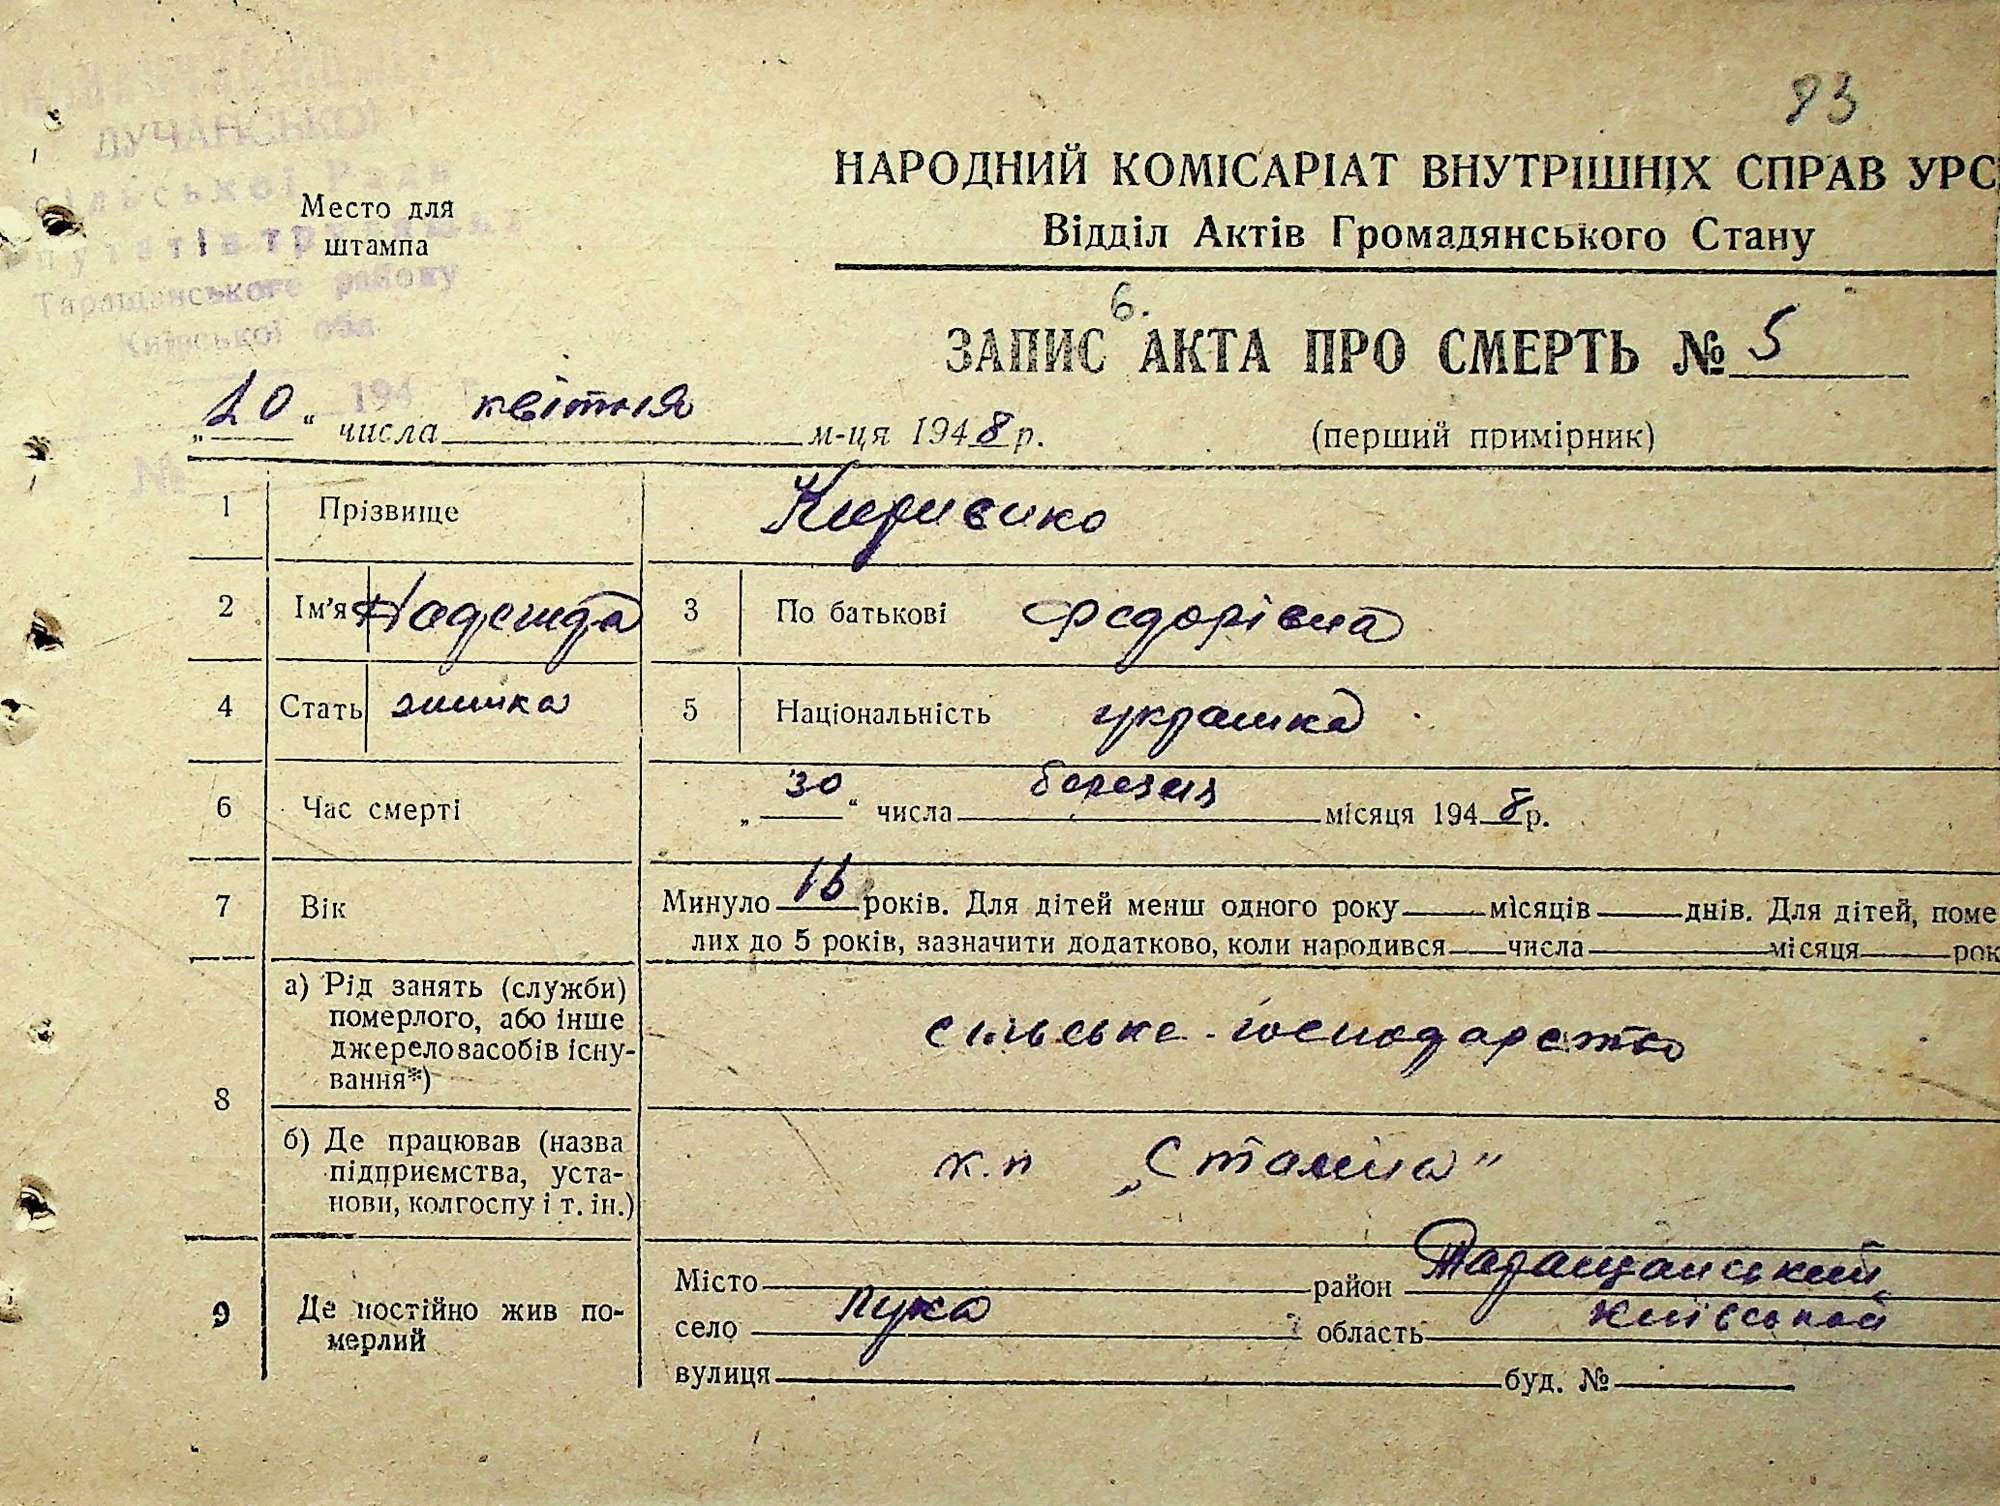 93
ЛУЧАНСЬКОЇ
сільської Ради
Таращанського району
Київської обл.
194
№
Место для
штампа
НАРОДНИЙ КОМІСАРІАТ ВНУТРІШНІХ СПРАВ УРС
Відділ Актів Громадянського Стану
6.
ЗАПИС АКТА ПРО СМЕРТЬ № 5
„10“ числа квітня м-ця 1948 р.
(перший примірник)
1 Прізвище
2 Ім'я Надежда 3 По батькові Федорівна
4 Стать жінка 5 Національність українка
6 Час смерті „30“ числа березня місяця 1948 р.
7 Вік Минуло 16 років. Для дітей менш одного року місяців днів. Для дітей, поме
лих до 5 років, зазначити додатково, коли народився числа місяця рок
8 а) Рід занять (служби)
померлого, або інше
джерело засобів існу-
вання*)
сільське-господарство
б) Де працював (назва
підприємства, уста-
нови, колгоспу і т. ін.)
к.п „Сталіна"
9 Де постійно жив по-
мерлий
Місто район Таращанський
село Лука область Київської
вулиця буд. №